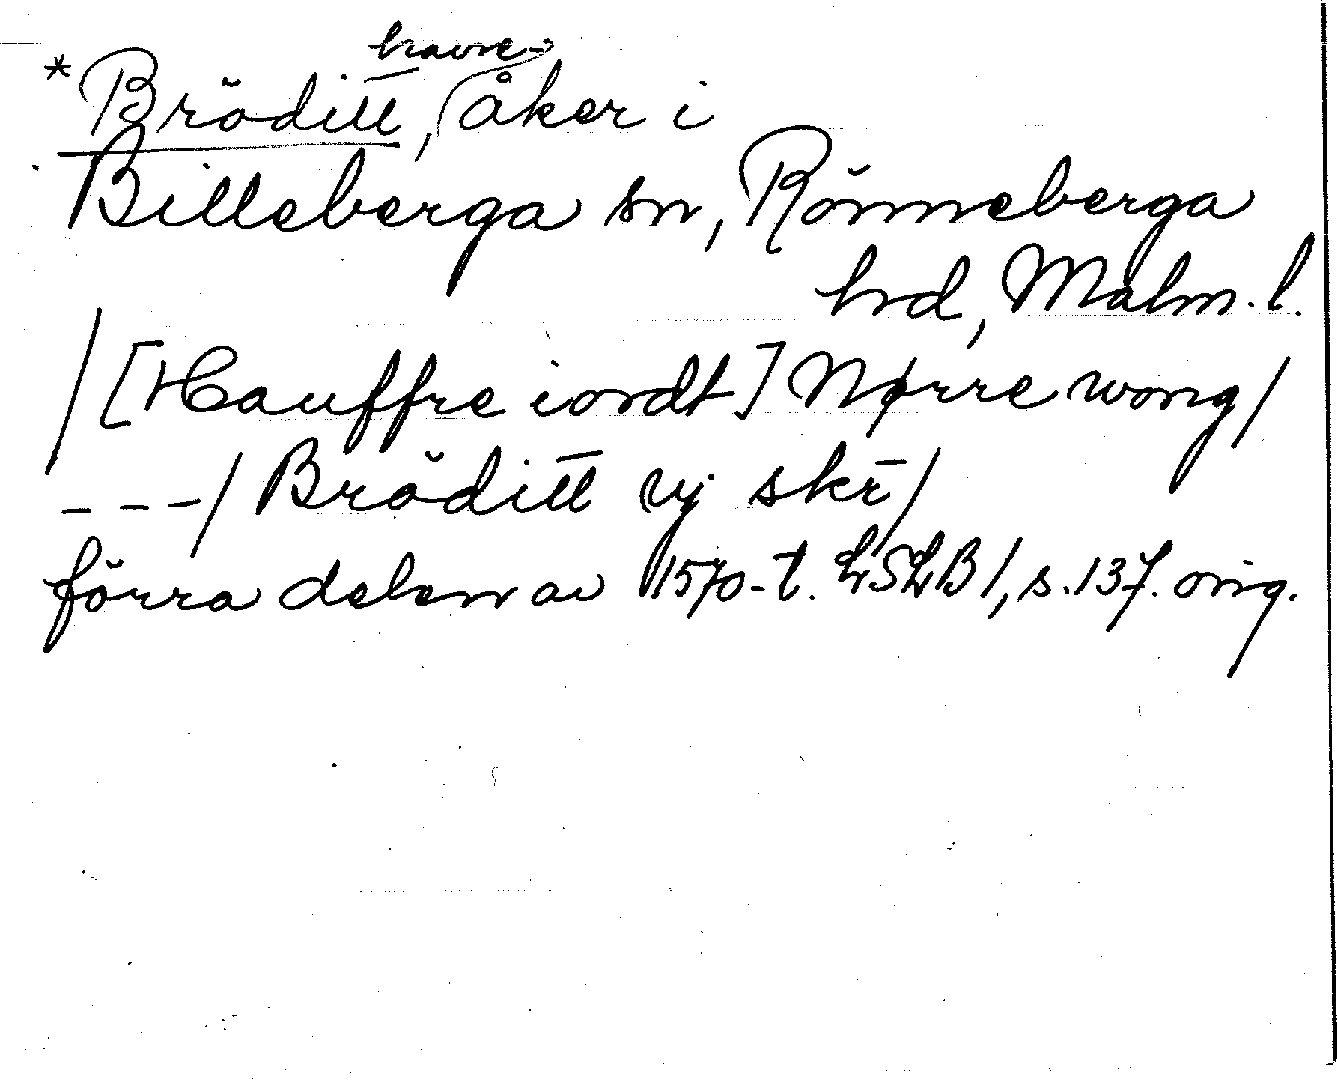 havre-
*Bröditt̅, åker i
Billeberga sn, Rönneberga
hrd, Malm. l.
/[Hauffre iordt] Nørre wong/
---/ Brödit̅t̅ vj skr̅/
förra delen av 1570-t. LSLB 1, s. 137. orig.